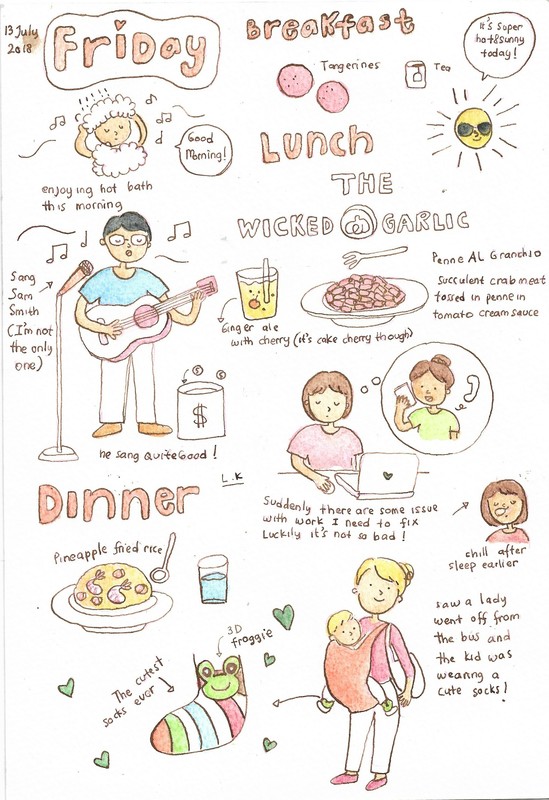 13 July
2018
Friday
Breakfast
Tangerines
Tea
It's super
hot&sunny
today!
Good
Morning!
enjoying hot bath
this morning
Lunch
THE
WICKED GARLIC
Penne AL Granchio
Succulent crabmeat
tossed in penne in
tomato cream sauce
Ginger ale
with cherry (it's cake cherry though)
Sang
Sam
Smith
(I'm not
the only
one)
$
he sang quite Good!
L.K
Suddenly there are some issue
with work I need to fix
Luckily it's not so bad!
chill after
sleep earlier
Dinner
Pineapple fried rice
saw a lady
went off from
the bus and
the kid was
wearing a
cute socks!
3D
froggie
The cutest
socks ever